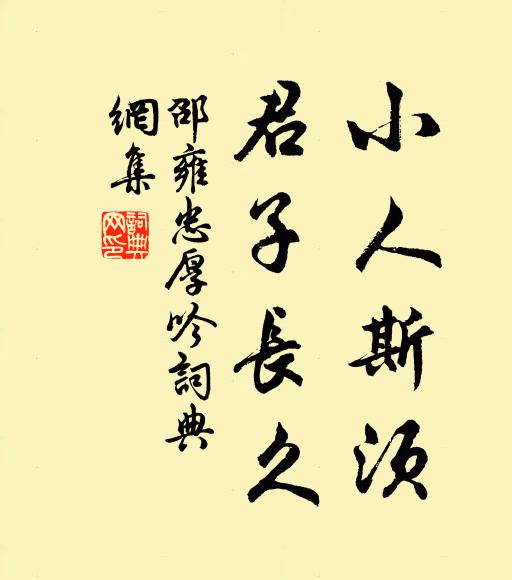 小人斯須
君子長久
邵雍忠厚吟詞典
網集
詞典網印